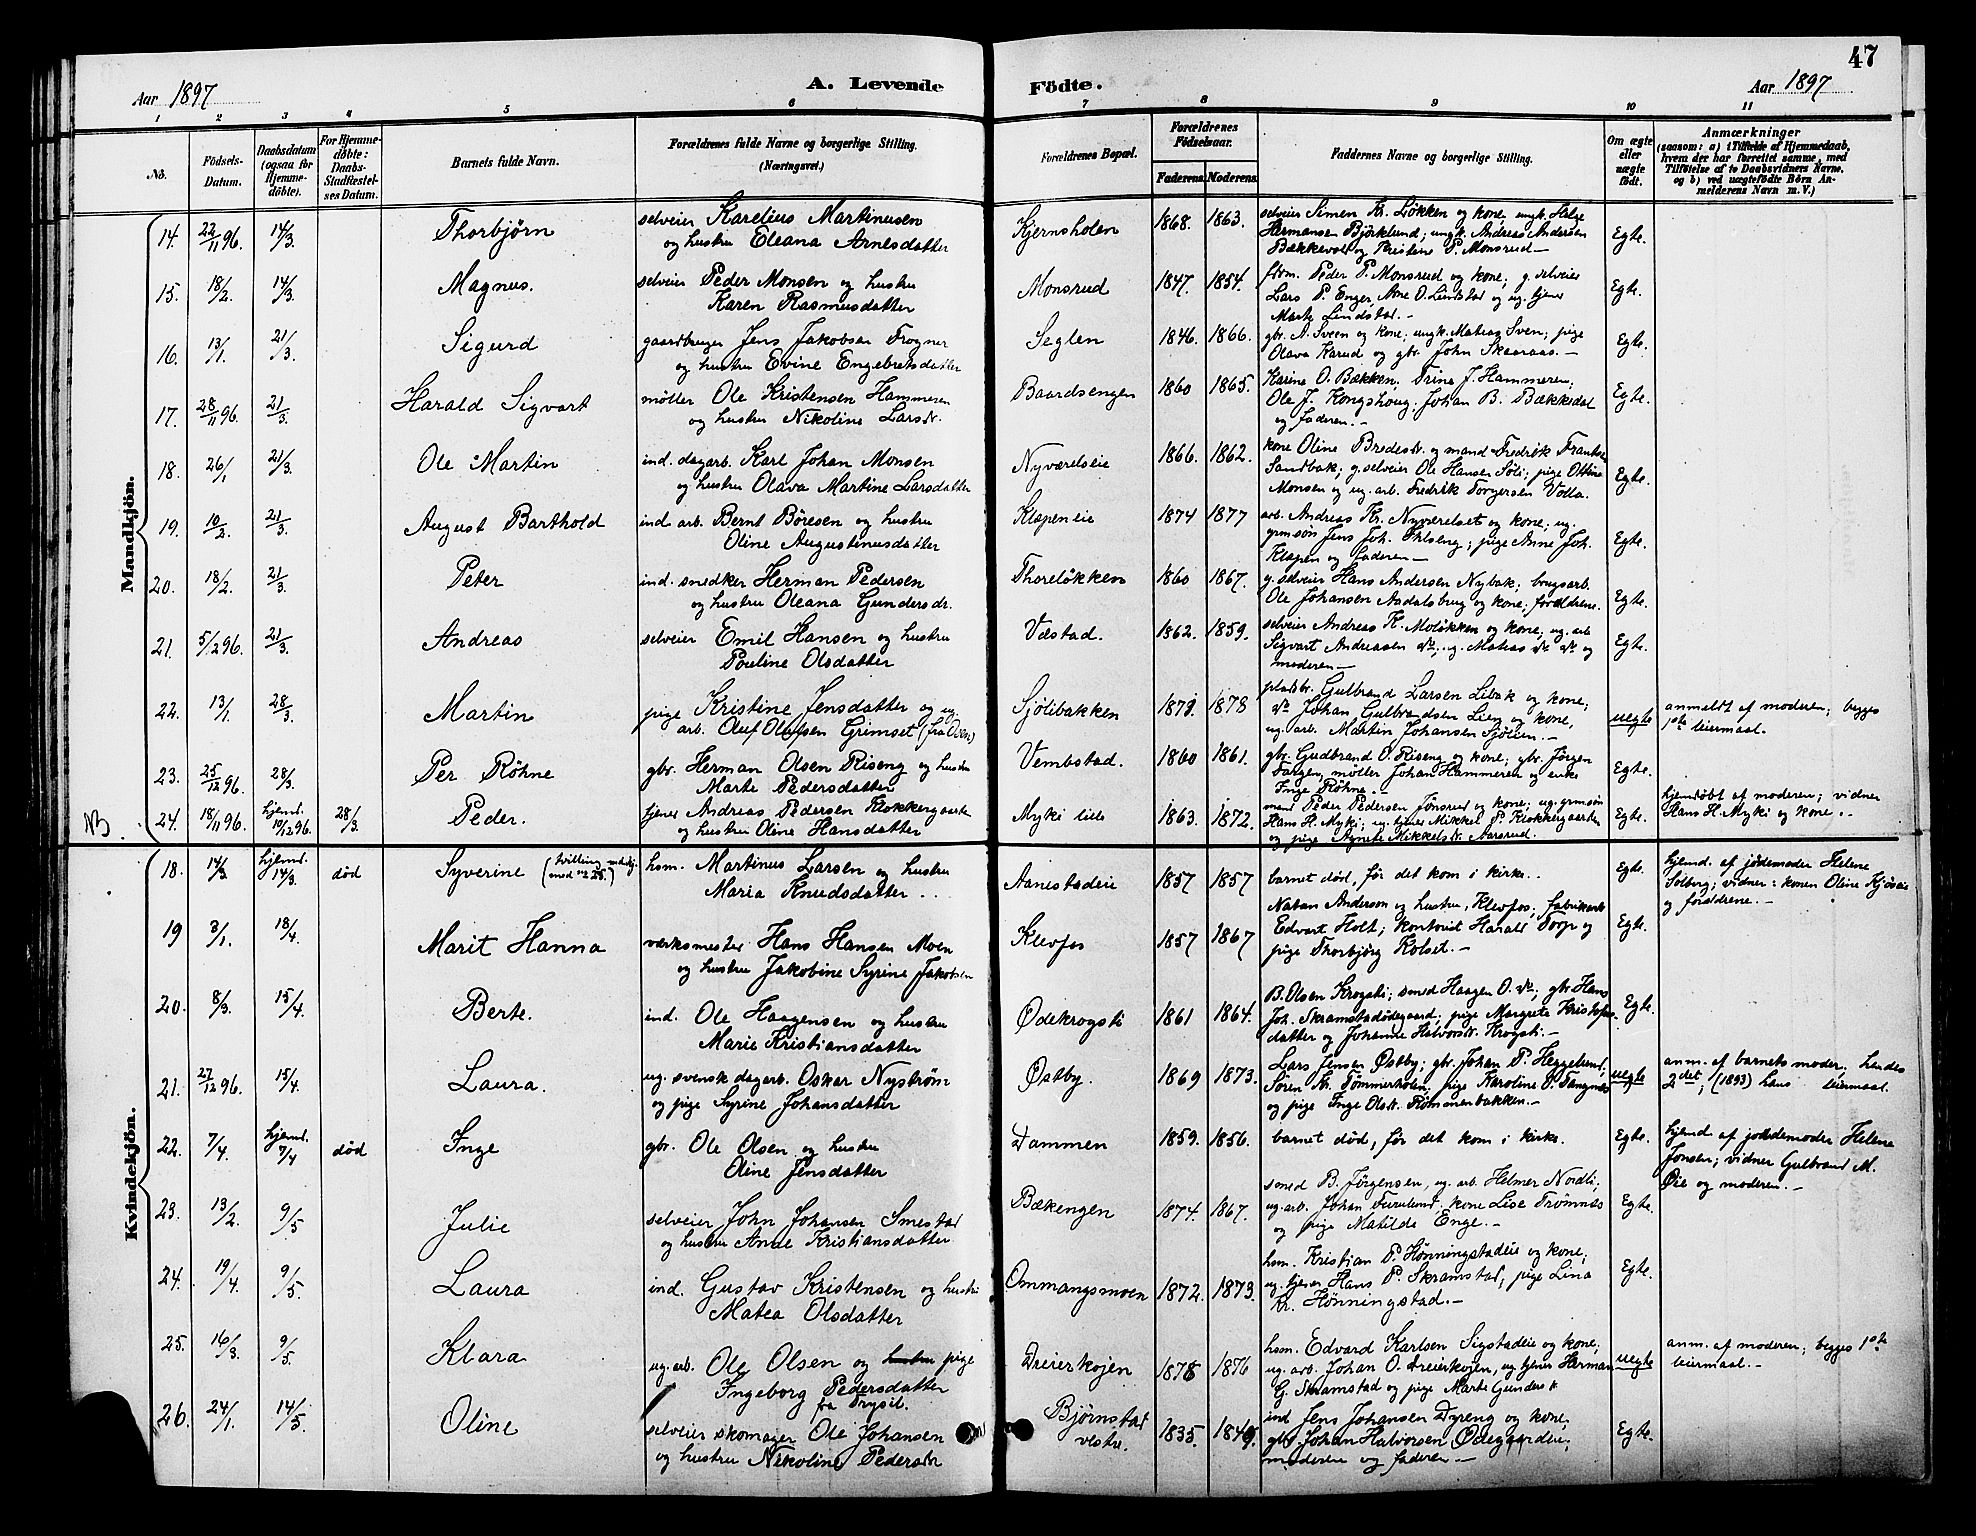 47
Aar 1897
A. Levende Födte.
Aar 1897
1 2 3 4 5 6 7 8 9 10 11
No.
Födsels-Datum.
Daabsdatum (ogsaa for Hjemmedöbte).
For Hjemmedöbte: Daabs-Stadfæstelses Datum.
Barnets fulde Navn.
Forældrenes fulde Navne og borgerlige Stilling. (Næringsvei.)
Forældrenes Bopæl.
Forældrenes Födselsaar.
Faderens Moderens
Faddernes Navne og borgerlige Stilling.
Om ægte eller uægte födt.
Anmærkninger
(saasom: a) i Tilfælde af Hjemmedaab, hvem der har forrettet samme, med Tilföielse af to Daabsvidners Navne, og b) ved uægtefödte Börn Anmelderens Navn m. V.)
Mandkjön.
14. 22/11 96. 14/3. Thorbjørn selveier Karelius Martinusen
og hustru Eleana Arnesdatter
Kjernsholen 1868. 1863. selveier Simen Kr. Løkken og kone, ungk. Helge
Hermansen Bjørklund; ungk. Andreas Andersen
Bækkevol og Kristine P. Monsrud — Egte.
15. 18/2. 14/3. Magnus. selveier Peder Monsen og hustru
Karen Rasmusdatter
Monsrud 1847. 1854. frm. Peder P. Monsrud og kone; g. selveier
Lars P. Enger, Arne O. Lindstad og ug. tjener
Marte Lindstad. — Egte.
16. 13/1. 21/3. Sigurd gaardbruger Jens Jakobsen Frogner
og hustru Evine Engebretsdatter
Seglen 1846. 1866. gbr. A. Sveen og kone; ungk. Matias Sven; pige
Olava Karud og gbr. John Skaaraas. — Egte.
17. 28/11 96. 21/3. Harald Sigvart møller Ole Kristensen Hammeren
og hustru Nikoline Larsdr.
Baardsengen 1860 1865. Karine O. Bækken, Trine J. Hammeren;
Ole J. Kongshoug, Johan B. Bækkedal
og faderen. — Egte.
18. 26/1 21/3. Ole Martin ind. dagarb. Karl Johan Monsen
og hustru Olava Martine Larsdatter
Nyværelseie 1866. 1862. kone Oline Bredesdr. og mand Fredrik Frantsen
Sandbak; g. selveier Ole Hansen Søli; pige Ottine
Monsen og ug. arb. Fredrik Torgersen Volla. Egte.
19. 10/2. 21/3. August Barthold ind. arb. Bernt Böresen og hustru
Oline Augustinusdatter
Klæpen eie 1874 1877 arb. Andreas Kr. Nyværelset og kone; ug.
grmsøn Jens Joh. ; pige Anne Joh.
Klæpen og faderen — Egte.
20. 18/2. 21/3. Peter ind. snedker Herman Pedersen
og hustru Oleana Gundersdr.
Thoreløkken 1860 1867. g. selveier Hans Andersen Nybak; brugsarb.
Ole Johansen Aadalsbrug og kone; forældrene. Egte.
21. 5/12 96. 21/3. Andreas selveier Emil Hansen og hustru
Pouline Olsdatter
Væstad. 1862. 1859. selveier Andreas K. Moløkken og kone; ug. arb
Sigvart Andreassen do; ug. Mateas do do og
moderen — Egte.
22. 13/1. 28/3. Martin pige Kristine Jensdatter og ug.
arb. Oluf Olufsen Grimset (fra Osen)
Sjölibakken 1873. 1878 pladsbr. Gulbrand Larsen Libak og kone;
do Johan Gulbrandsen Lien og kone,
ug. arb. Martin Johansen Sjölien. — uegte anmeldt af moderen; begges
1ste leiermaal.
23. 25/12 96. 28/3. Per Röhne gbr. Herman Olsen Riseng og hustru
Marte Pedersdatter
Vembstad. 1860 1861. gbr. Gudbrand O. Riseng og kone; gbr. Jörgen
Fangen, møller Johan Hammeren og enke
Inge Röhne. — Egte.
NB. 24. 18/11 96. hjemd. 19/12 96. 28/3. Peder. tjener Andreas Pedersen Klokkergaarden
og hustru Oline Hansdatter
Myki lille 1863. 1872. mand Peder Pedersen Jönsrud og kone; ug. grmsøn
Hans H. Myki; ug. tjener Mikkel P. Klokkergaarden
og pige Agnete Mikkelsdr. Aarsrud. Egte. hjemdøbt af moderen; vidner
Hans H. Myki og kone. -
Kvindekjön.
18. 14/3 hjemd. 14/3. död Syverine (tvilling mandkj. med no 25.) hsm. Martinus Larsen og hustru
Maria Knudsdatter
Aanestadeie 1857 1857 barnet död, før det kom i kirke. Egte. hjemd. af jordemoder Helene
Solberg; vidner: konen Oline Kjöseie
og forældrene. —
19 3/1. 18/4. Marit Hanna værksmester Hans Hansen Moen
og hustru Jakobine Syrine Jakobsen
Klevfos 1857 1867 Natan Anderson og hustru, Klevfos; fabrikarb.
Edvart Holt; kontorist Harald Torp og
pige Thorbjörg Kolset. — Egte.
20. 8/3. 15/4. Berte. ind. Ole Haagensen og hustru
Marie Kristiansdatter
Ödekrogsti 1861 1864. B. Olsen Krogsti; smed Haagen O. do; gbr. Hans
Joh. Skramstadödegaard; pige Margrete Kristofers
datter og Johanne Halvorsdr. Krogsti. — Egte.
21. 27/12 96. 15/4. Laura. ug. svensk dagarb. Oskar Nyström
og pige Syrine Johansdatter
Östby. 1869 1873. Lars Jensen Östby; gbr. Johan P. Heggelund;
Sören Kr. Tömmerholen, pige Karoline P. Fangnæs
og pige Inge Olsdr. Römmenbakken. — uegte anm. af barnets moder; hendes
2det, (1893) hans leiermaal.
22. 7/4. hjemd. 7/4 död Inge gbr. Ole Olsen og hustru
Oline Jensdatter
Dammen 1859. 1856. barnet död, før det kom i kirke. Egte. hjemd af jordemoder Helene
Jonsen; vidner Gulbrand M.
Öie og moderen. —
23. 13/2. 9/5. Julie selveier John Johansen Smestad
og hustru Anne Kristiansdatter
Bækengen 1874. 1867. smed B. Jörgensen, ug. arb. Helmer Nordli;
ug. arb. Johan Furulund, kone Lise Trömnæs
og pige Matilde Enge. — Egte.
24. 19/4 9/5. Laura ind. Gustav Kristensen og hustru
Matea Olsdatter
Ommangsmoen 1872. 1873. hsm. Kristian P. Hönningstadeie og kone;
ug. tjener Hans P. Skramstad, pige Lina
Kr. Hönningstad. — Egte.
25. 16/3. 9/5. Klara ug. arb. Ole Olsen og hustru pige
Ingeborg Pedersdatter
fra Trysil.
Dreierkojen 1875 1876 hsm. Edvard Karlsen Sigstadeie og kone;
ug. arb. Johan O. Dreierkojen, ug. tjener Herman
G. Skramstad og pige Marte Gundersdr. uegte anm. af moderen; begges 1ste
leiermaal. —
26. 24/1. 14/5. Oline selveier skomager Ole Johansen
og hustru Nikoline Pedersdr
Björnstad
vestre. 1835. 1849. ind Jens Johansen Dyreng og kone,
gbr. Johan Halvorsen Ödegaarden,
moderen og faderen — Egte.